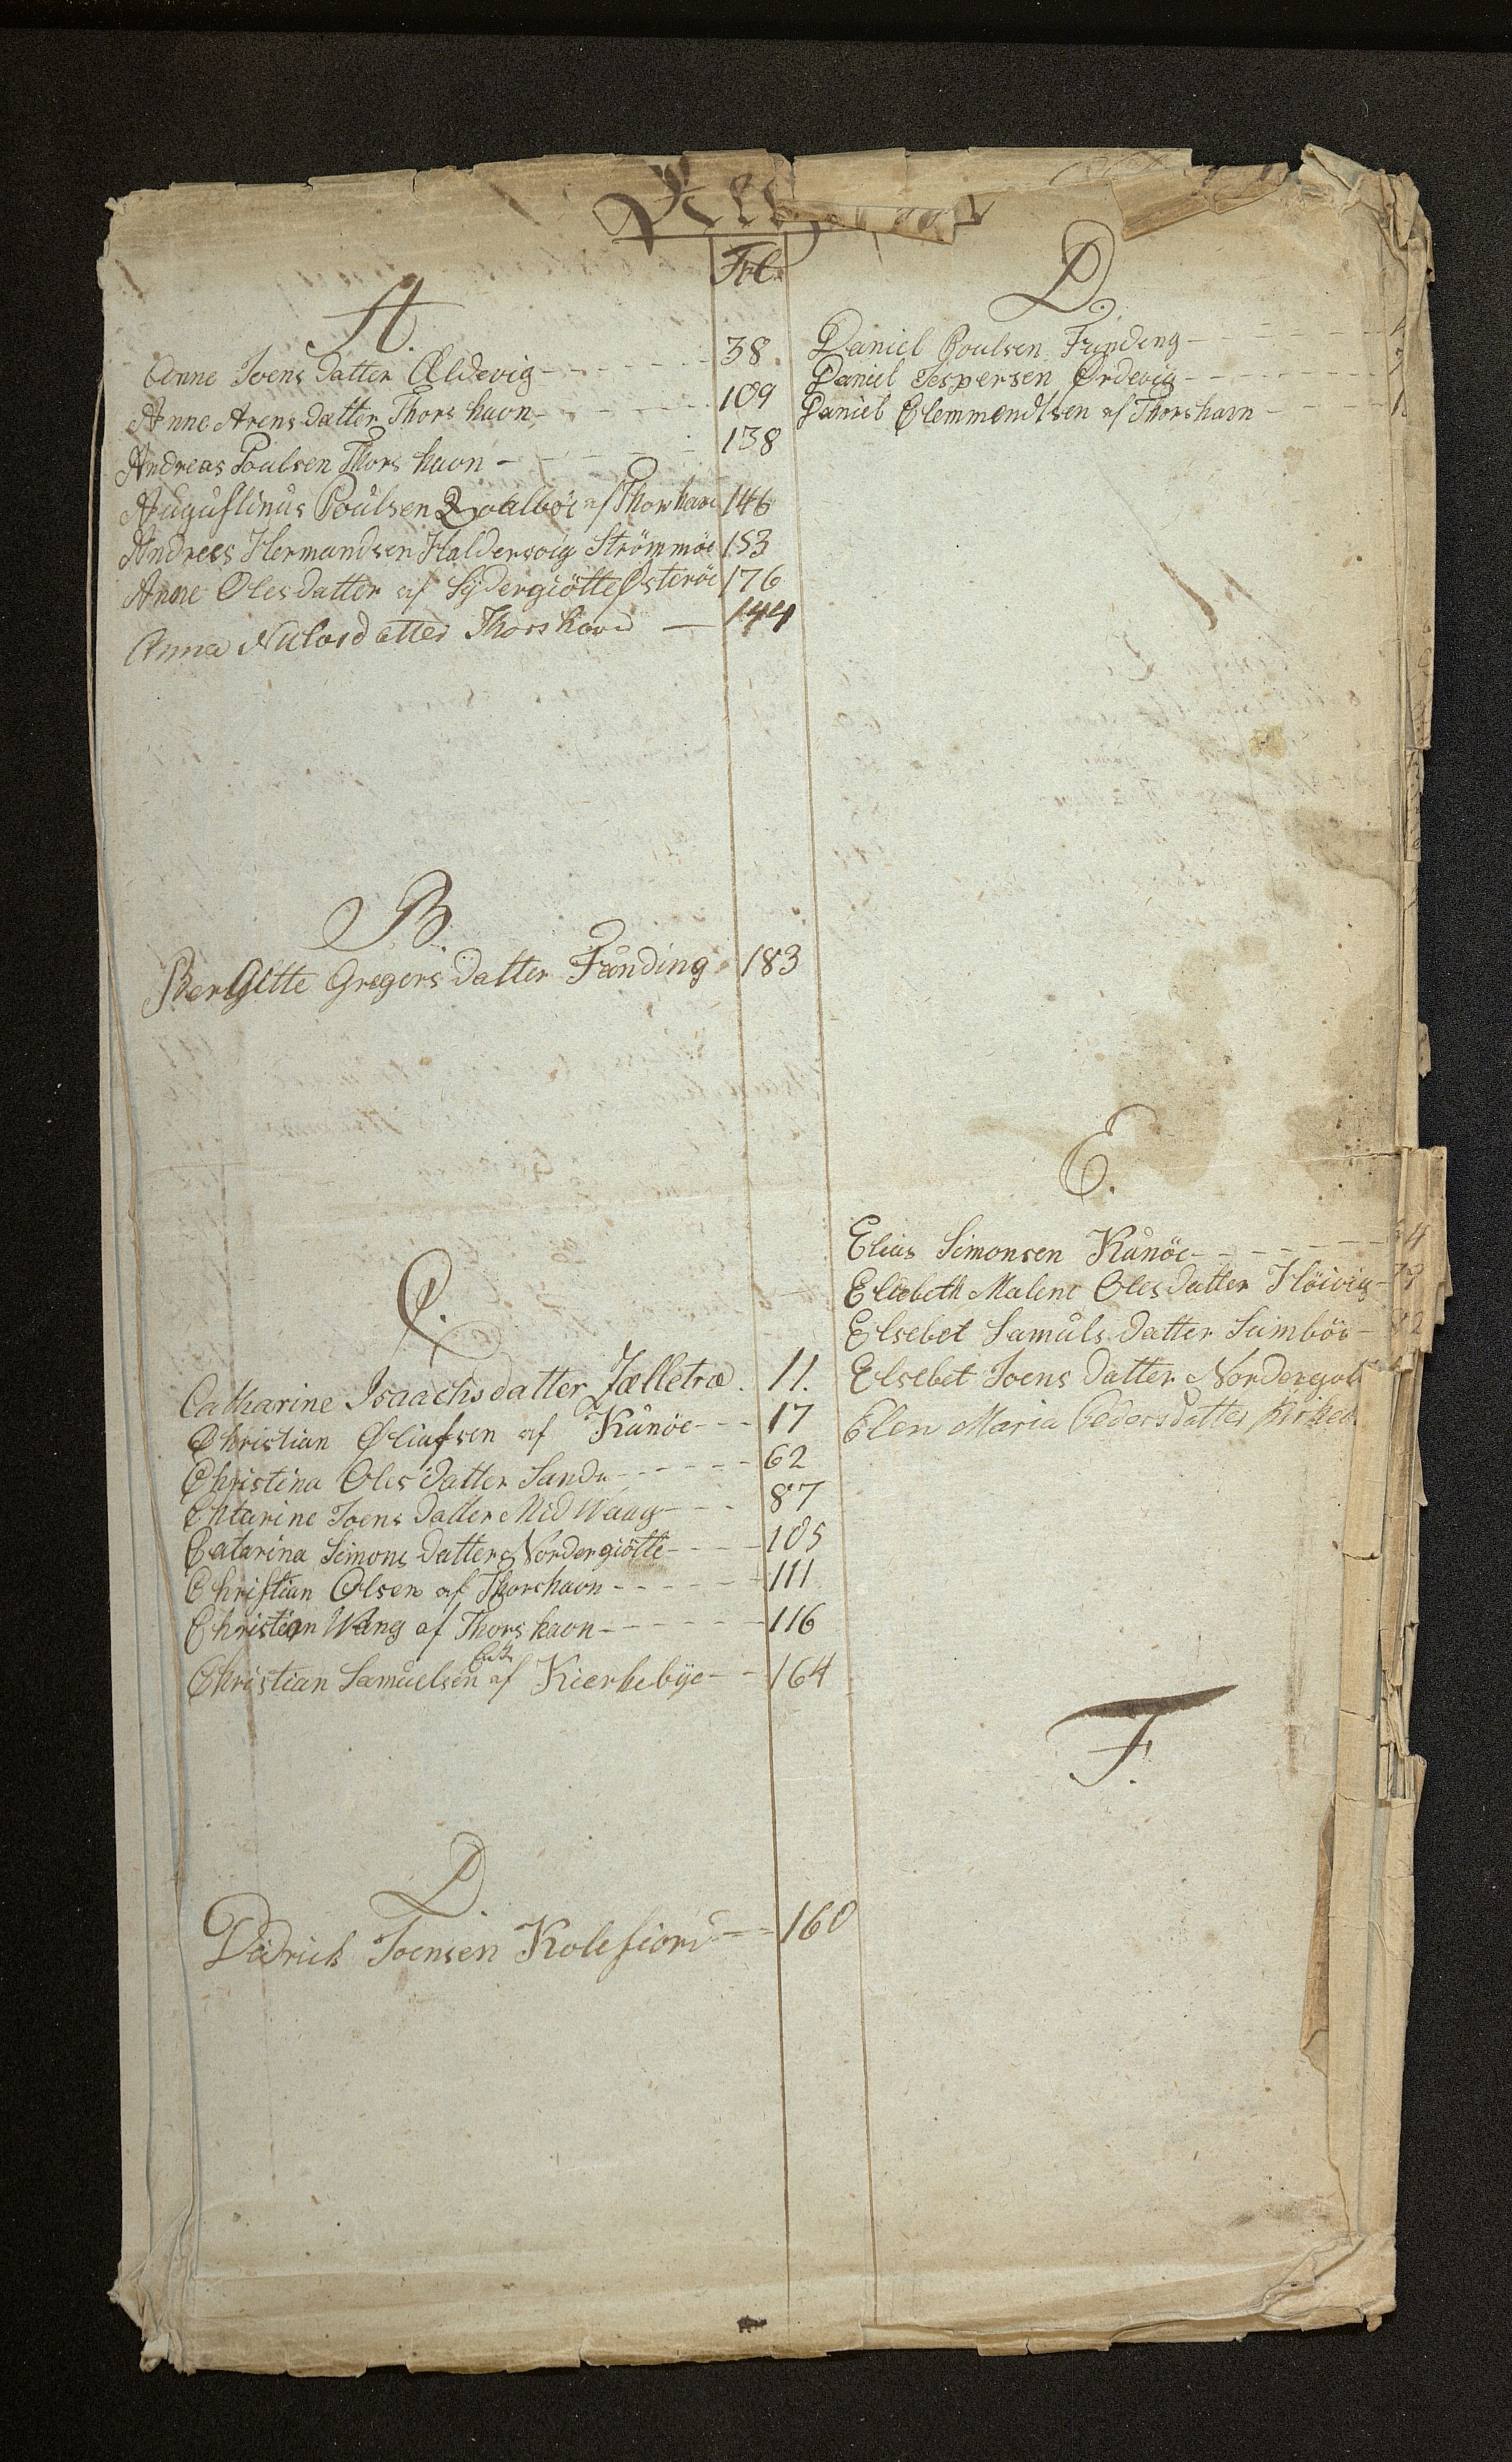 Fol.
A.
Anne Joens Datter Ældevig 38
Anne Arens Datter Thors havn 109
Andreas Poulsen Thors havn 138
Augustinus Poulsen Qvalböe af Thorshavn 146
Andreas Hermandsen Haldersvig Strömmöe 153
Anne Oles Datter af Sydergiötte Østeröe 176
Anna datter Thorshavn 144
B.
Bergitte Gregers Datter Funding 183
C.
Catharine Isaachsdatter Zælletræ. 11.
Christian Øliafsen af Kunöe 17
Christina Oles Datter Sande 62
Chtarine Joens Datter Mid Waag 87
Catarina Simons Datter Nordergiötte 105
Christian Olsen af Thorshavn 111
Christian Wang af Thorshavn 116
Christian Samuelsen af Kierkebye 164
D.
Didrich Joensen Kolefiord 160
D.
Daniel Poulsen Funding
Daniel Jespersen Ørdevig
Daniel Clemmendtsen af Thorshavn
E.
Elias Simonsen Kunöe
Elsebeth Malene Oles Datter
Elsebet Samuls Datter Sumböe
Elsebet Joens Datter
Elen Maria Peders datter
F.